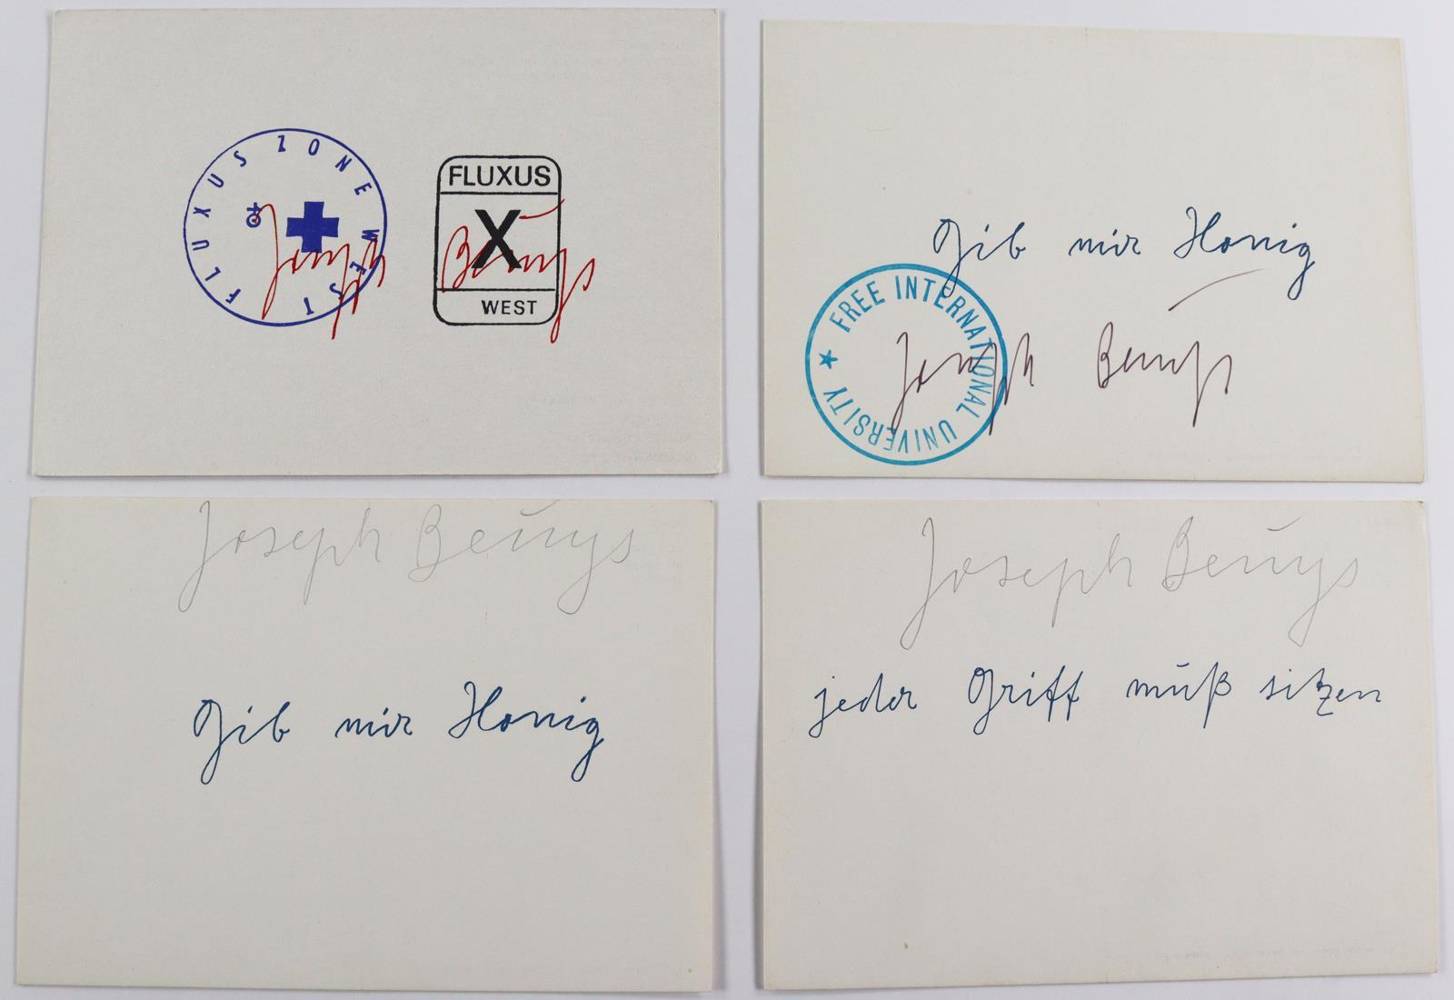 FLUXUS ZONE WEST
FLUXUS
X
WEST
Joseph Beuys
Gib mir Honig
FREE INTERNATIONAL UNIVERSITY
Joseph Beuys
Joseph Beuys
Gib mir Honig
Joseph Beuys
jeder Griff muß sitzen